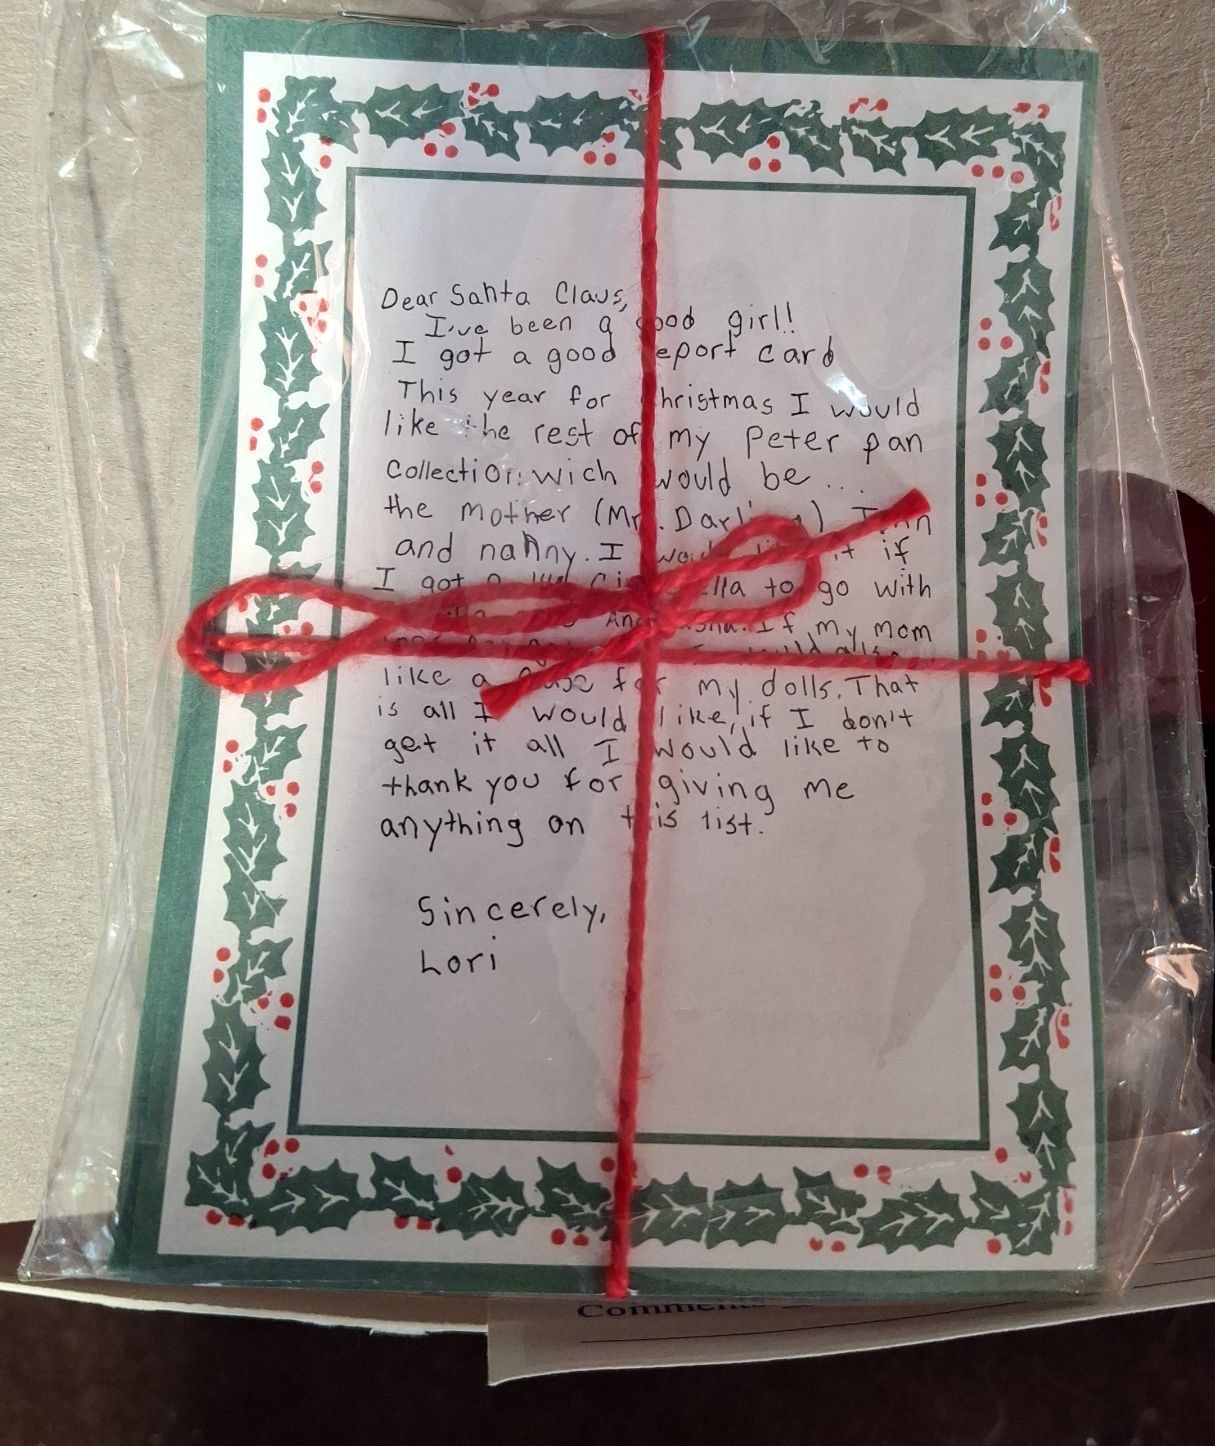 Dear Santa Claus,
I've been a good girl!!
I got a good report card
This year for Christmas I would
like the rest of my Peter pan
collection wich would be...
the mother (Mr. Darling)
and nanny. I would it if
I got a to go with
If my mom
like a for my dolls. That
is all I would like, if I don't
get it all I would like to
thank you for giving me
anything on this list.
Sincerely,
Lori
Comments